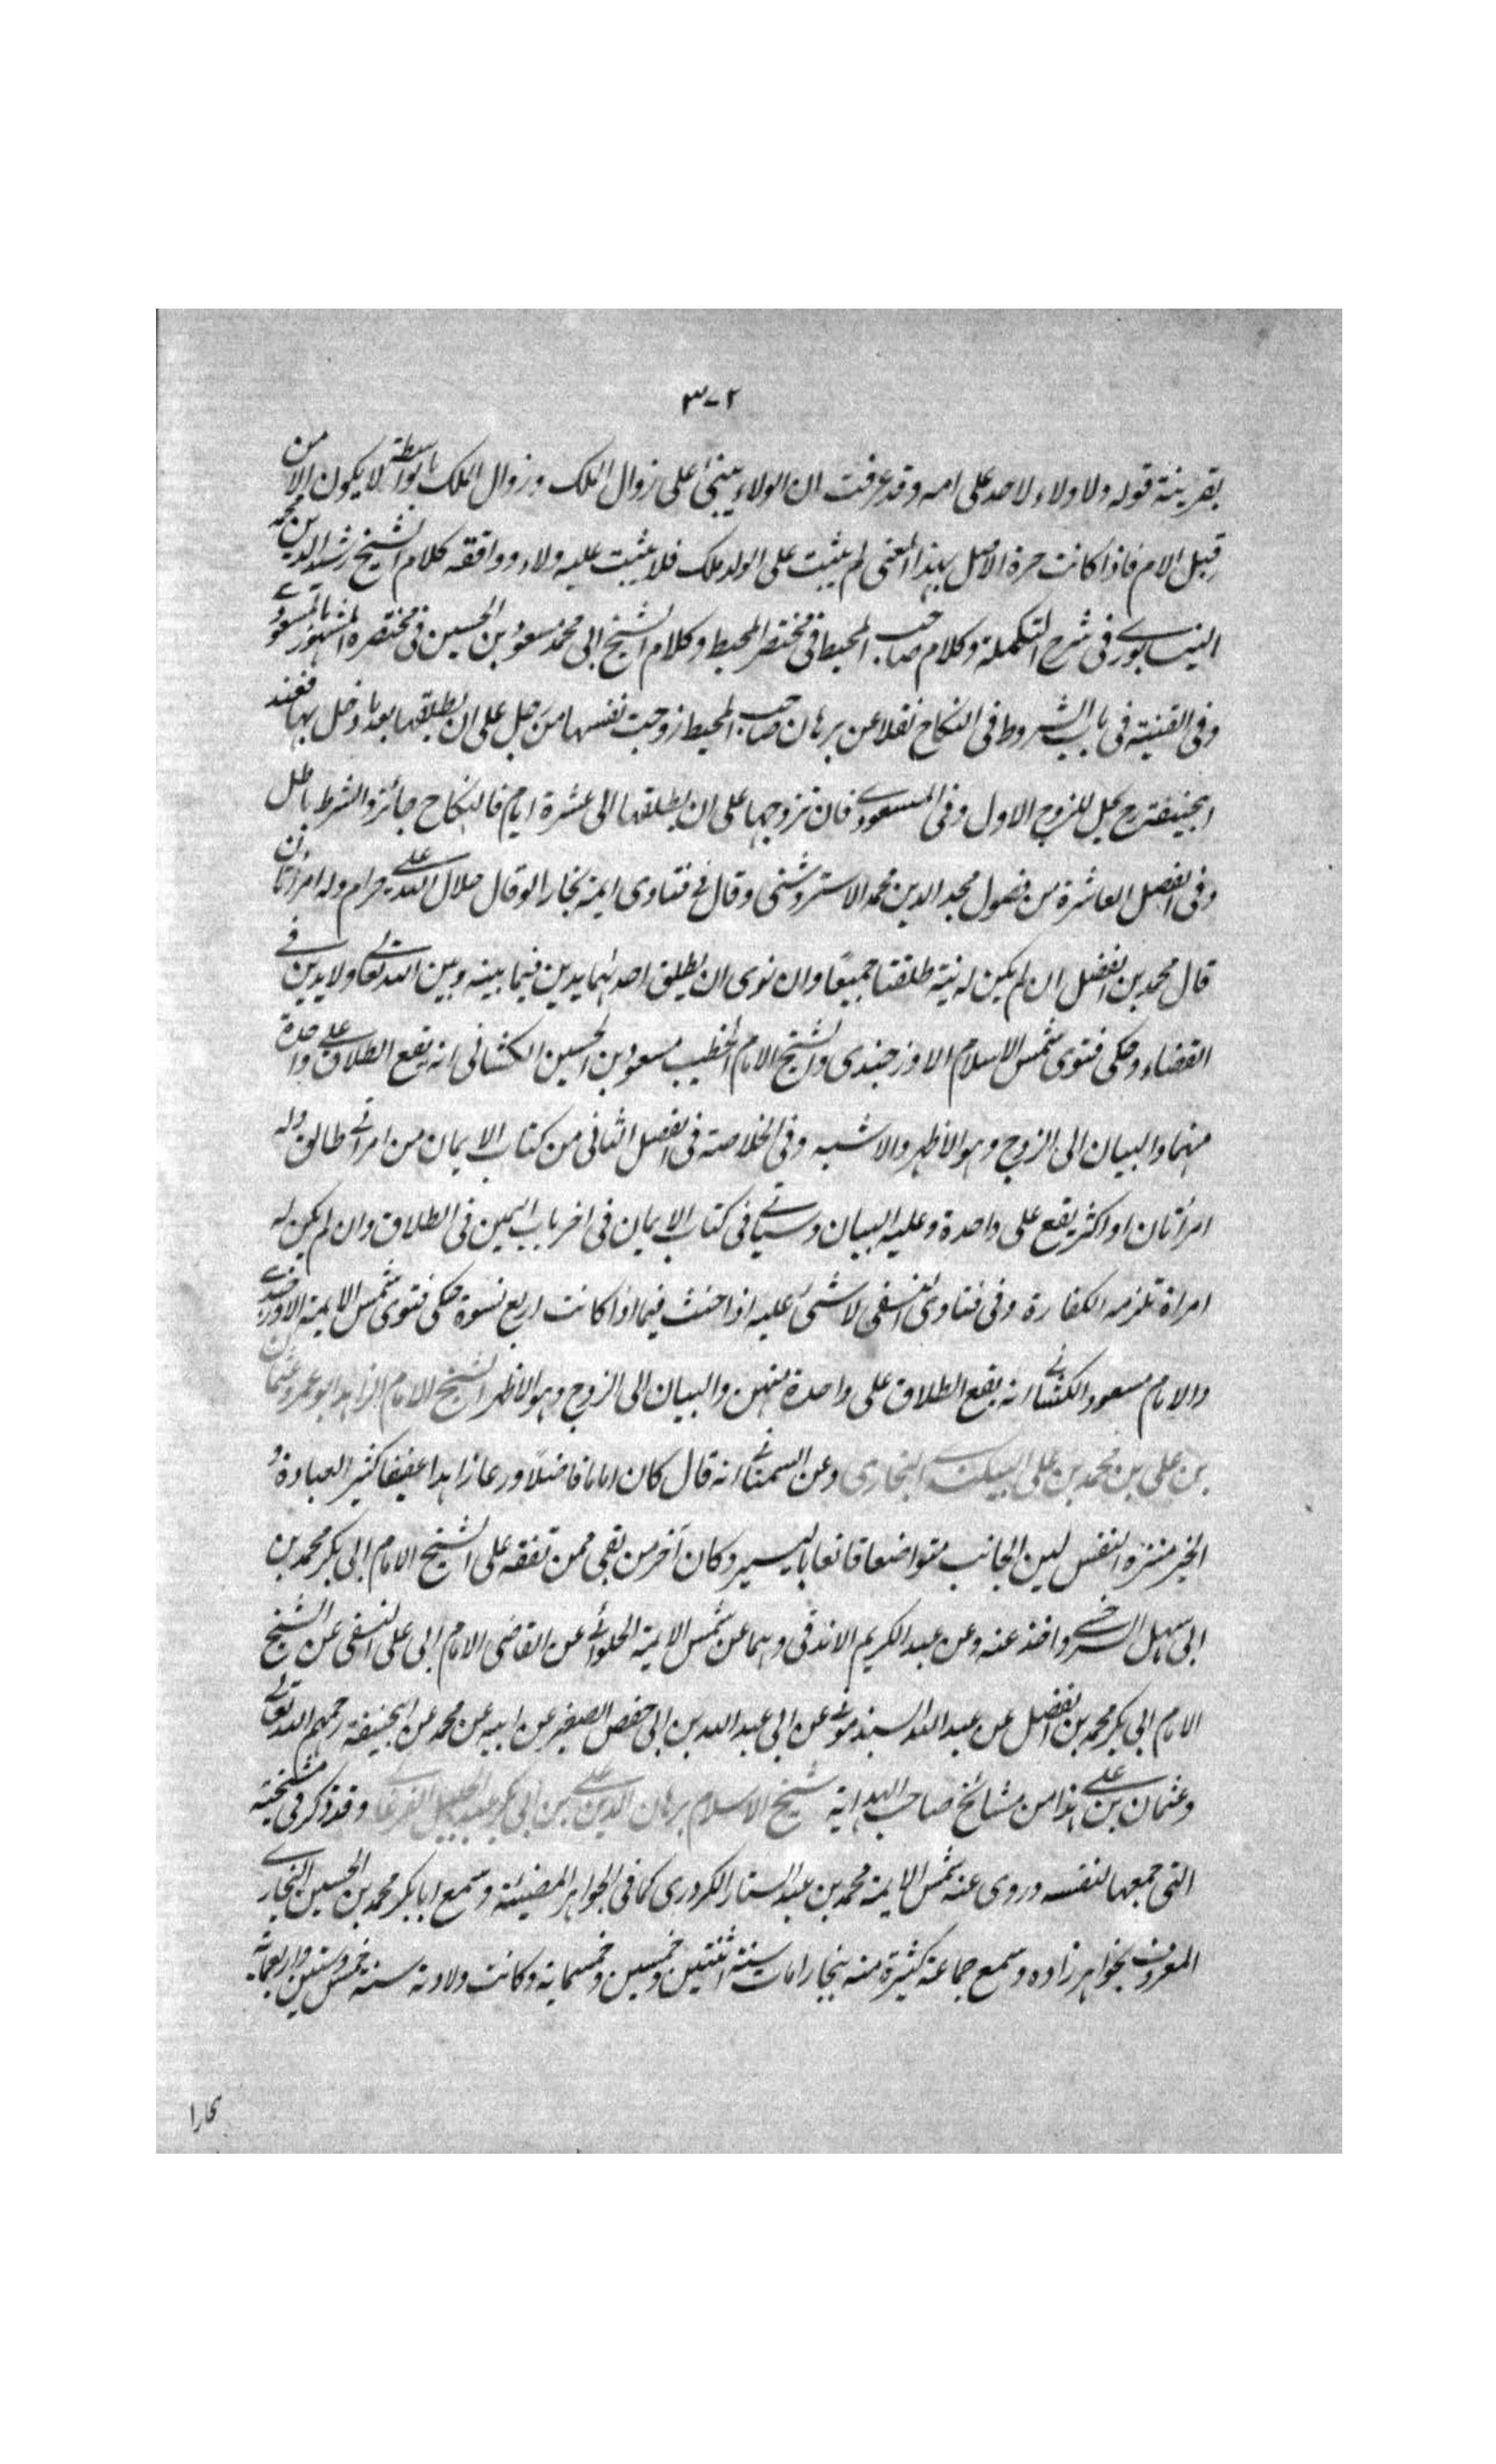 ٣٧٢
بقرينة قوله ولا ولاء لاحد على امه وقد عرفت ان الولاء يبنى على زوال الملك وزوال الملك بواسطة لا يكون الا من
قبل الام فاذا كانت حرة الاصل بهذا المعنى لم يثبت على الولد ملك فلا يثبت عليه ولاء ووافقه كلام الشيخ رشيد الدين محمد
النيسابورى فى شرح التكملة وكلام صاحب المحيط فى مختصر المحيط وكلام الشيخ ابى محمد مسعود بن الحسين فى مختصره المشهور بالمسعودى
وفى القنية فى باب الشروط فى النكاح نقلا عن برهان صاحب المحيط زوجت نفسها من رجل على ان يطلقها بعد ما دخل بها فعند
ابيحنيفة رح يحل للزوج الاول وفى المسعودى فان تزوجها على ان يطلقها الى عشرة ايام فالنكاح جائز والشرط باطل
وفى الفصل العاشرة من فصول مجد الدين محمد الاستروشنى وقال فى فتاوى ايمة بخارا لو قال حلال الله على حرام وله امرأتان
قال محمد بن الفضل ان لم يكن له نية طلقتا جميعًا وان نوى ان يطلق احدٰهما يدين فيما بينه وبين الله تعالى ولا يدين فى
القضاء وحكى فتوى شمس الاسلام الاوزجندى والشيخ الامام الخطيب مسعود بن الحسين الكشانى انه يقع الطلاق على واحدة
منهما والبيان الى الزوج وهو الاظهر والاشبه وفى الخلاصة فى الفصل الثانى من كتاب الايمان من امراتى طالق وله
امرأتان او اكثر يقع على واحدة وعليه البيان وسياتى فى كتاب الايمان فى اخر باب اليمين فى الطلاق وان لم يكن له
امراة تلزمه الكفارة وفى فتاوى النسفى لا شئ عليه اذا حنث فيما اذا كانت اربع نسوة حكى فتوى شمس الايمة الاوزجندى
والامام مسعود الكشانى انه يقع الطلاق على واحدة منهن والبيان الى الزوج وهو الاظهر الشيخ الامام الزاهد ابو عمرو عثمان
بن على بن محمد بن على البيكندى البخارى وعن السمعانى انه قال كان اماما فاضلًا ورعا زاهدا عفيفا كثير العبادة و
الخير منزه النفس لين الجانب متواضعا قانعا باليسير وكان آخر من بقى ممن تفقه على الشيخ الامام ابى بكر محمد بن
ابى سهل السرخسى واخذ عنه وعن عبد الكريم الاندقى وهما عن شمس الايمة الحلوائى عن القاضى الامام ابى على النسفى عن الشيخ
الامام ابى بكر محمد بن الفضل عن عبد الله السبذمونى عن ابى عبد الله بن ابى حفص الصغير عن ابيه عن محمد عن ابيحنيفة رحمهم الله تعالى
وعثمان بن على هذا من مشائخ صاحب الهداية شيخ الاسلام برهان الدين على بن ابى بكر عبد الجليل الفرغانى وقد ذكر فى مشيخته
التى جمعها لنفسه وروى عنه شمس الايمة محمد بن عبد الستار الكردرى كما فى الجواهر المضيئة وسمع ابا بكر محمد بن الحسين البخارى
المعروف بخواهر زاده وسمع جماعة كثيرة منه ببخارا مات سنة اثنتين وخمسين وخمسماية وكانت ولادته سنة خمس وستين واربعماية
بخارا